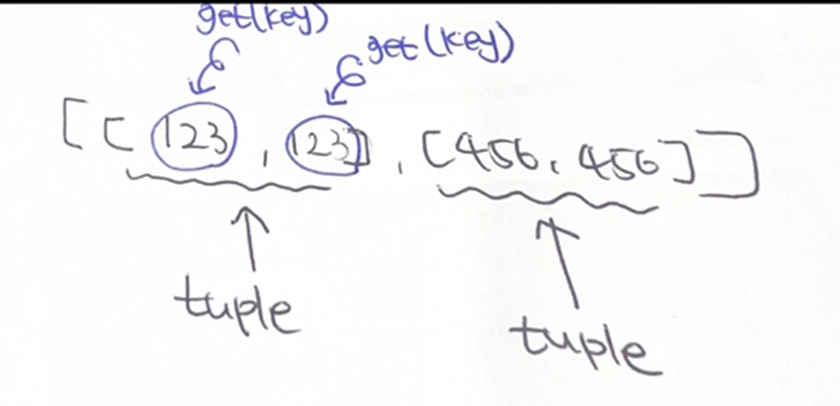 get(key)
get(key)
[[123, 123], [456, 456]]
tuple
tuple